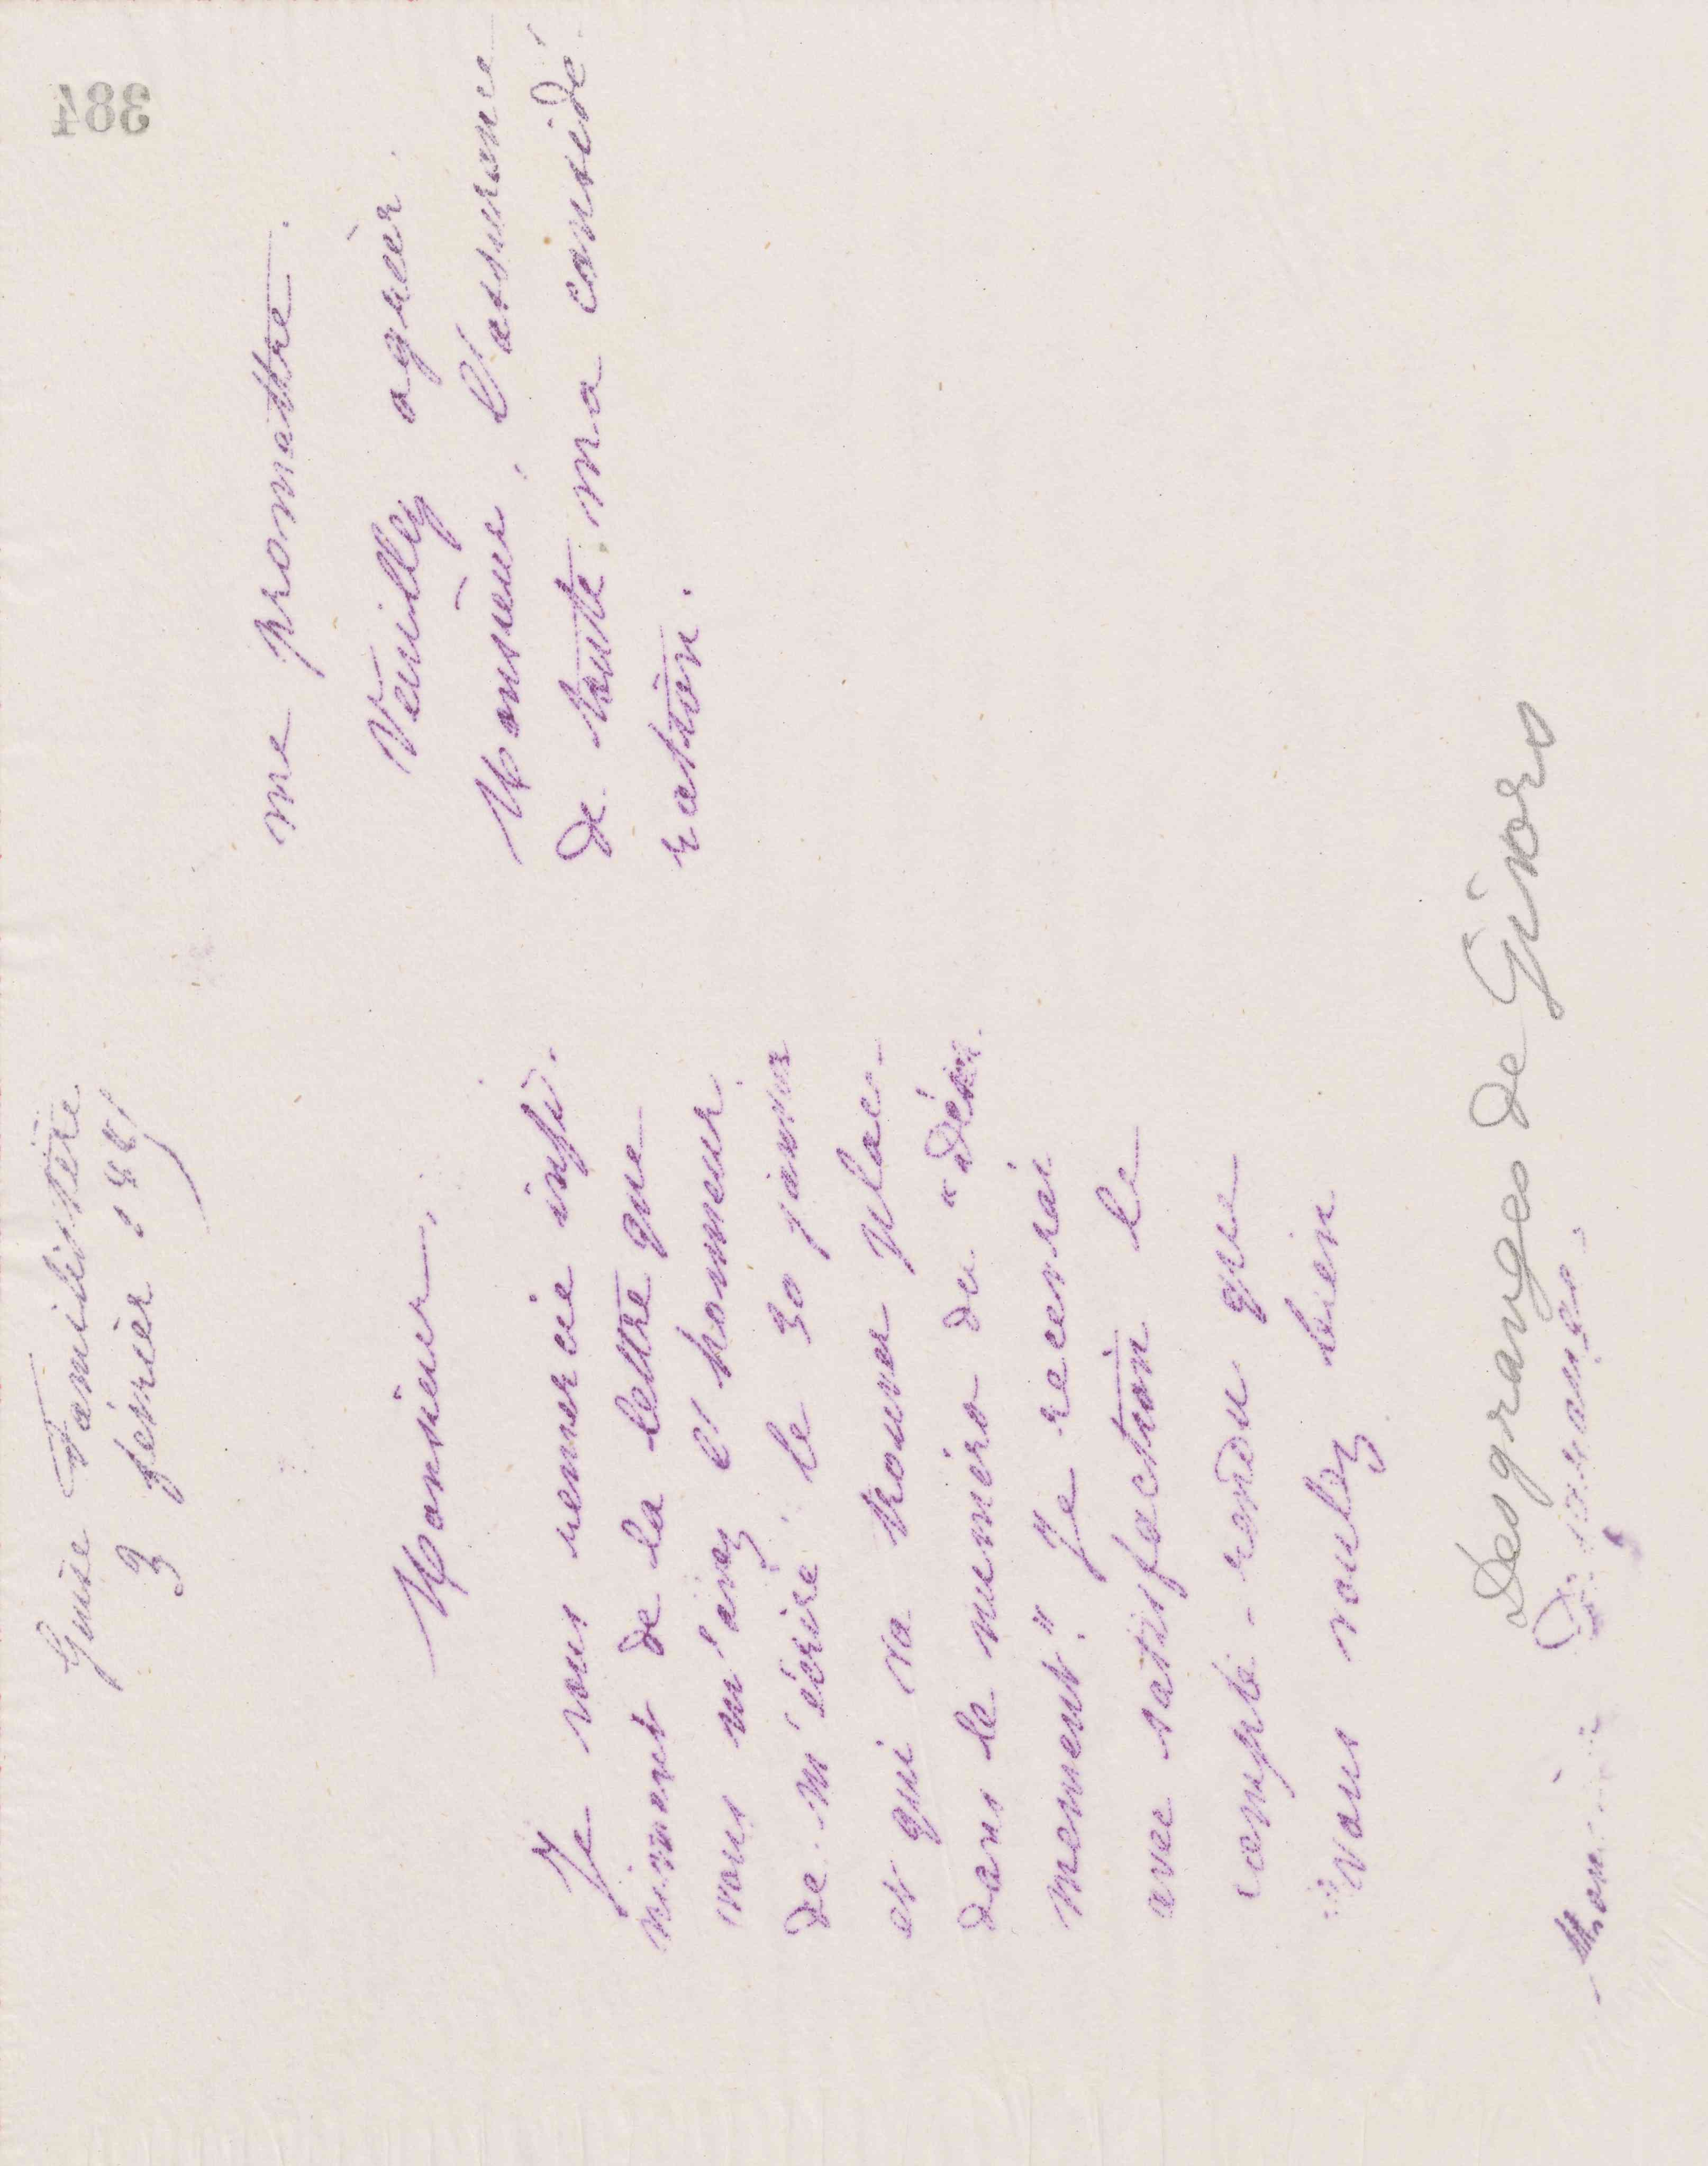 384
Guise Familistère
3 février 188
Monsieur,
Je vous remercie infi-
niment de la lettre que
vous m'avez l'honneur
de m'écrire le 30 janvier
et qui va trouver place
dans le numéro du "Désar-
mement". Je recevrai
avec satisfaction le
compte-rendu que
vous voulez bien
me promettre.
Veuillez agréer
Monsieur, l'assurance
de toute ma considé-
ration.
Desgranges de Givors